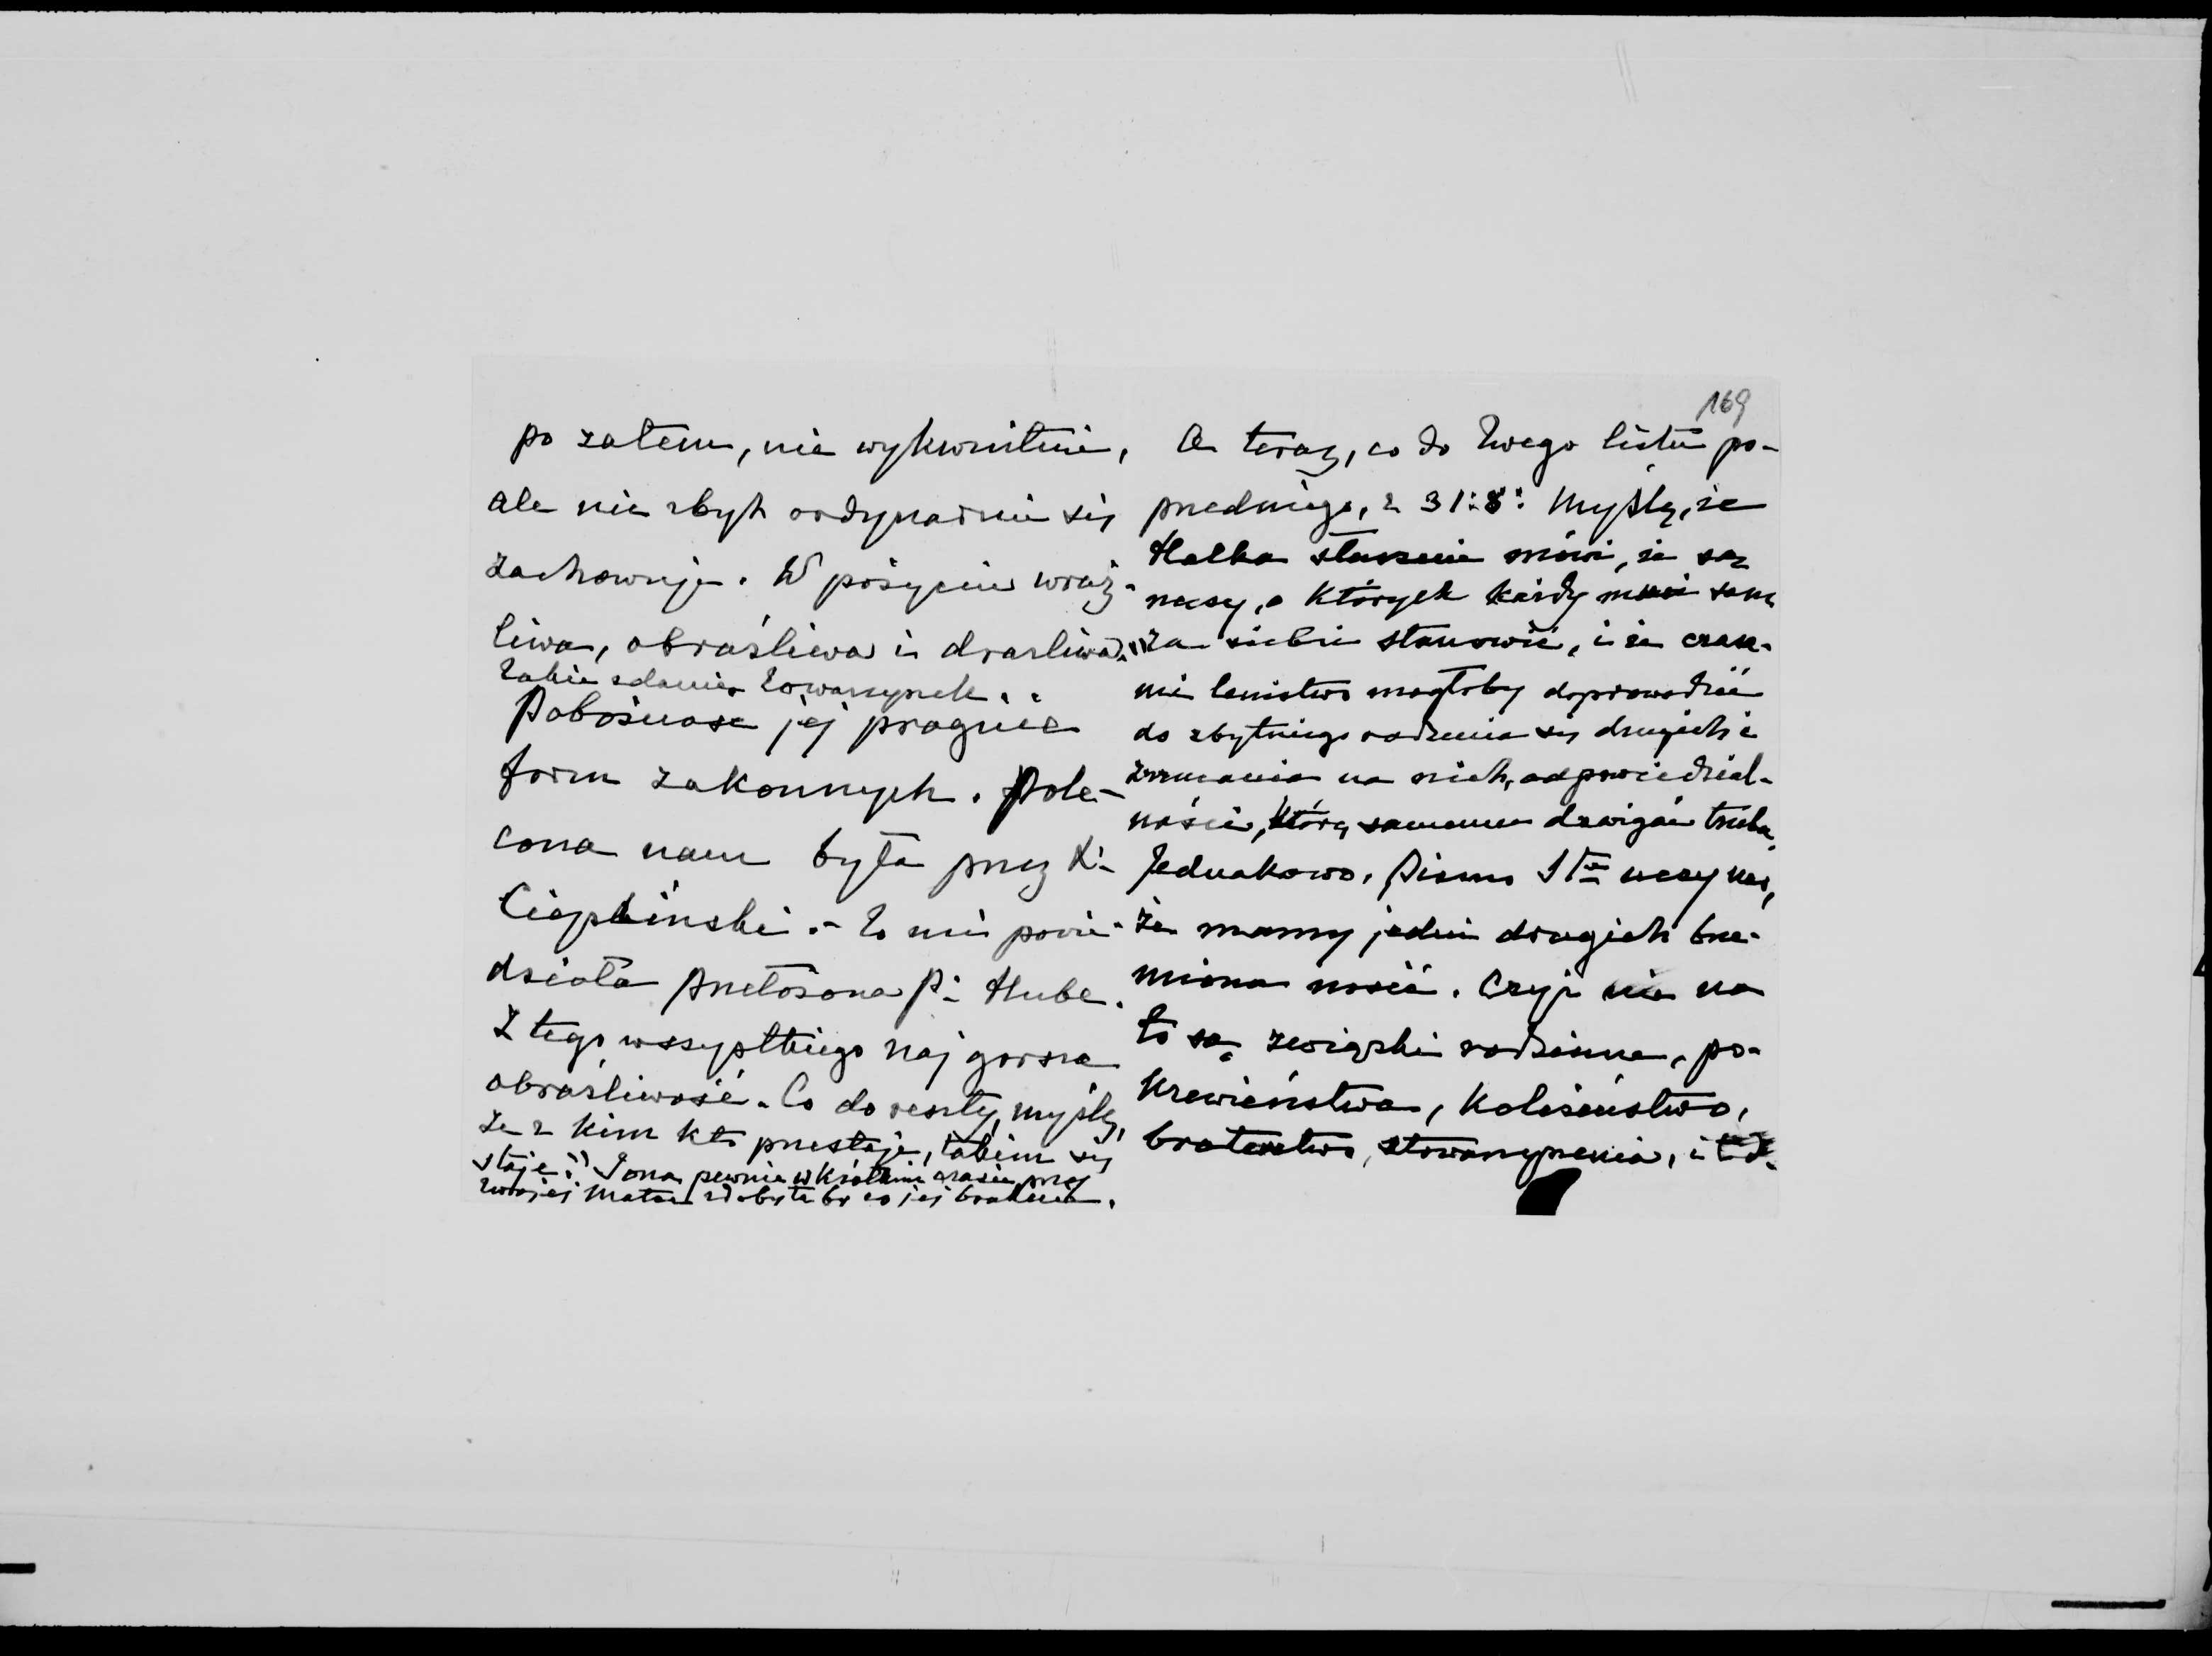 po zatem, nie wykwintnie,
ale nie zbyt ordynarnie się
zachowuje. W pożyciu wraż-
liwa, obraźliwa i drażliwa."
takie zdanie towarzyszek..
Pobożność jej pragnie
form zakonnych. Pole-
cona nam była przez X:
Ciepliński.- To mi powie-
działa Przełożona P: Hube.
Z tego wszystkiego najgorsza
obraźliwość. Co do reszty, myślę,
że z kim kto przestaje, takim się
staje." I ona pewnie w krótkim czasie przy
twojej Matce zdobyła by co jej brakuje.
169
A teraz, co do Twego listu po-
przedniego, z 31:8: Myślę, że
Halka słusznie mówi, że są
rzeczy, o których każdy musi sam
za siebie stanowić, i że czase-
mi lenistwo mogłoby doprowadzić
do zbytniego radzenia się drugich i
zrzucania na nich, odpowiedzial-
ności, którą samemu dźwigać trzeba.
Jednakowo, Pismo Ste uczy nas,
że mamy jedni drugich brze-
miona nosić. Czyż nie na
to są związki rodzinne, po-
krewieństwa, koleżeństwo,
braterstwo, stowarzyszenia, i t d.